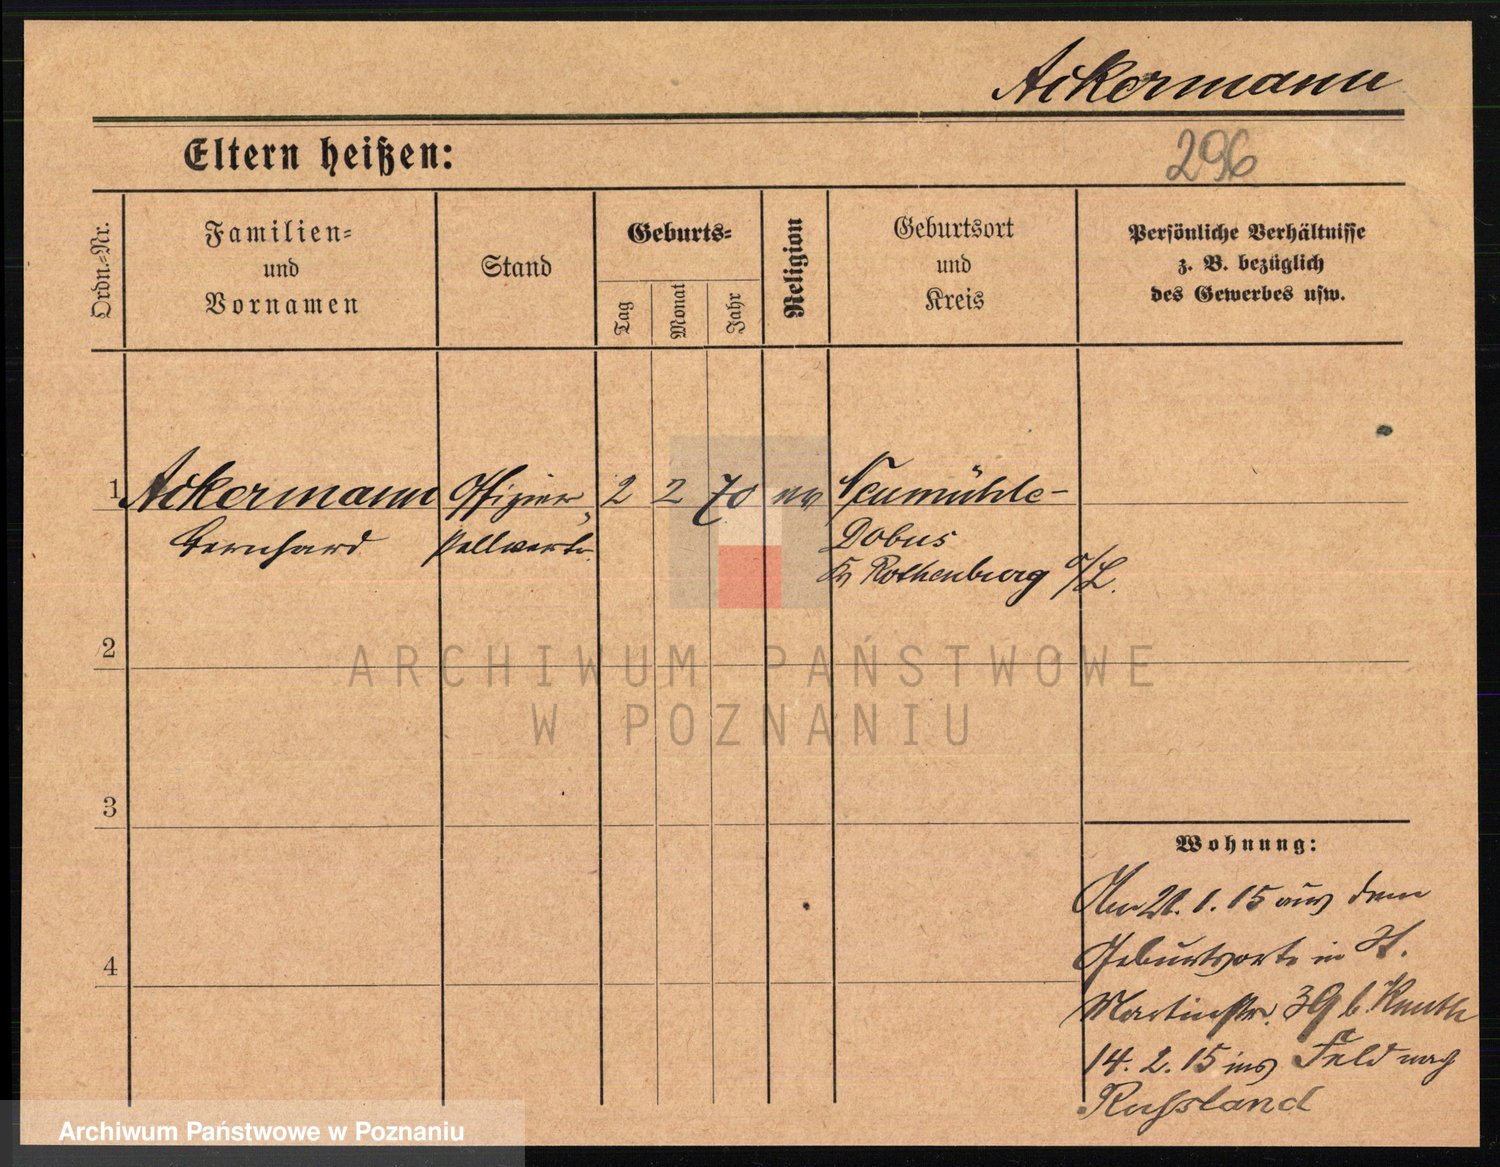 Ackermann
Eltern heißen:
296
Ordn.-Nr.
Familien-
und
Vornamen
Stand
Geburts-
Tag
Monat
Jahr
Religion
Geburtsort
und
Kreis
Persönliche Verhältnisse
z. B. bezüglich
des Gewerbes usw.
1 Ackermann Offizier, 2 2 70 ev Neumühle-
Bernhard stellvertr. Dobus
Kr Rothenburg O/L.
2
ARCHIWUM PAŃSTWOWE
W POZNANIU
3
4
Wohnung:
Am 21. 1. 15 aus dem
Geburtsorte in St.
Martinstr. 39 b.
14. 2. 15 ins Feld nach
Russland
Archiwum Państwowe w Poznaniu